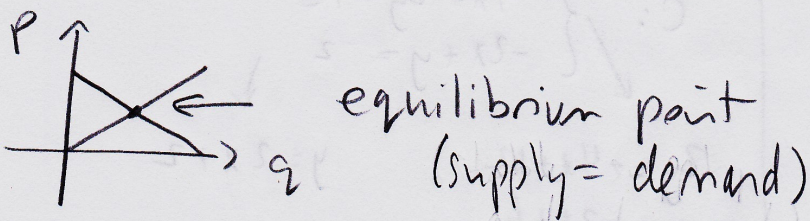 P
equilibrium point
q
(supply = demand)